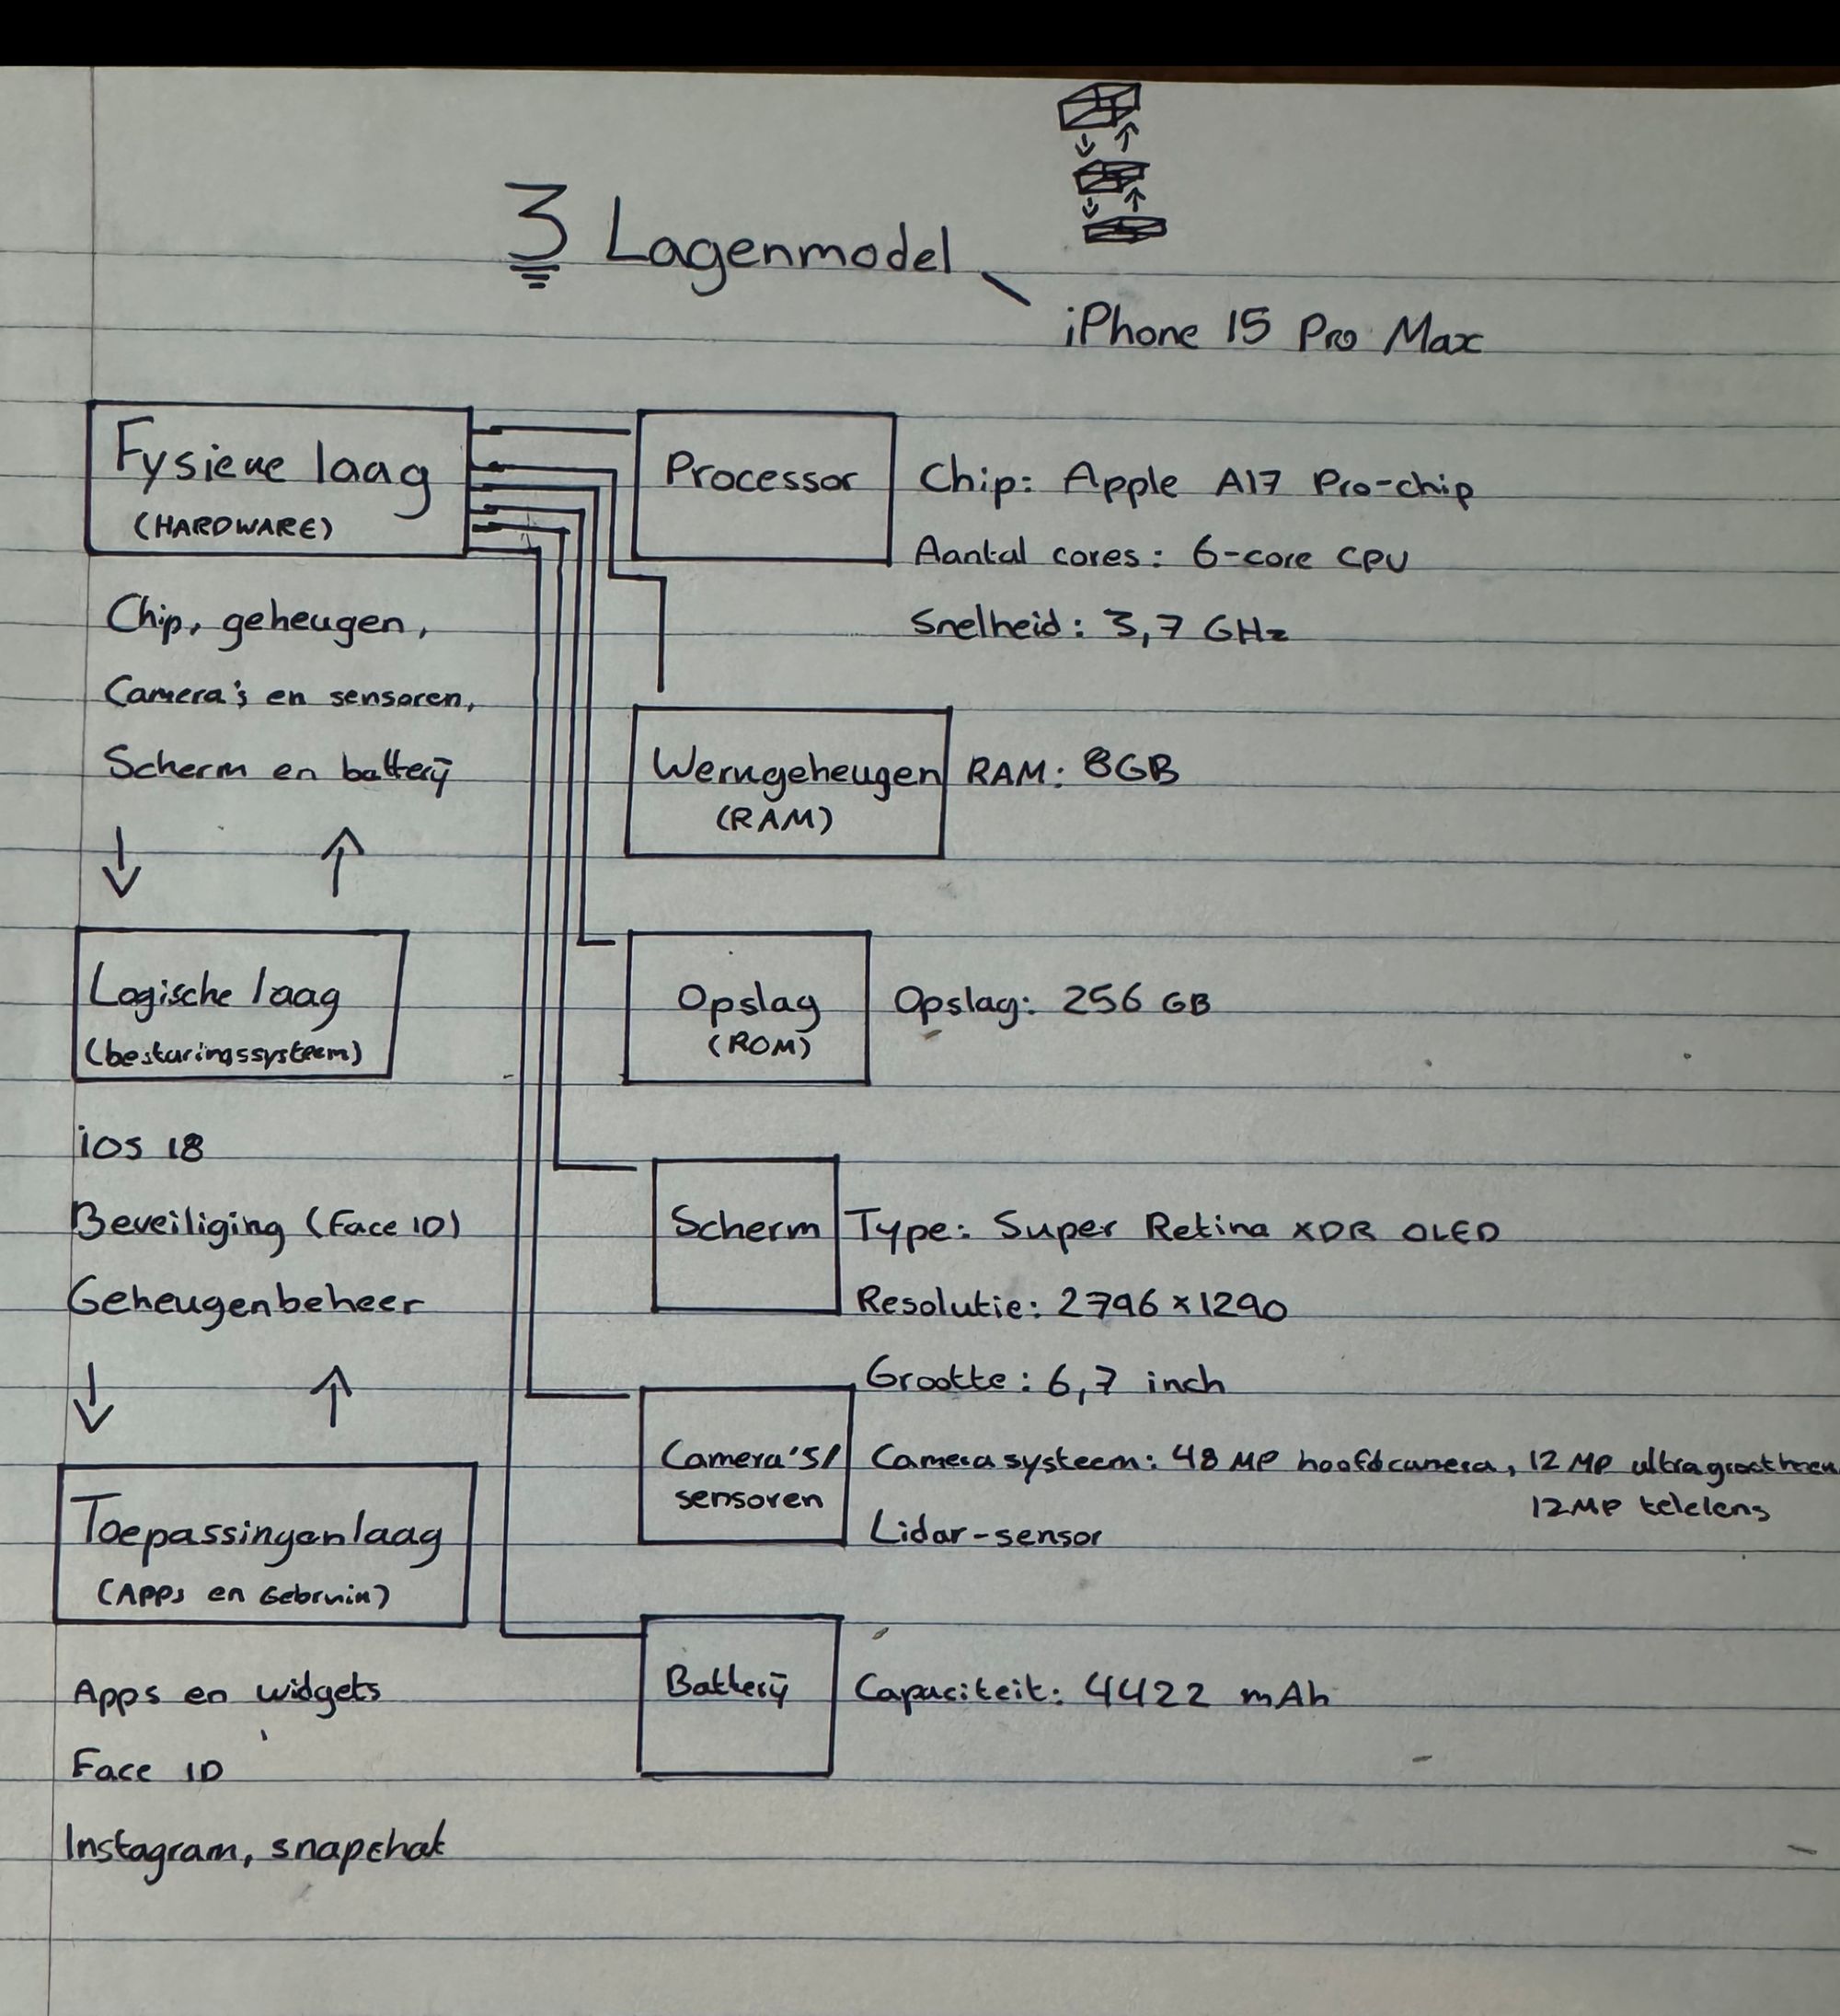 3 Lagenmodel
iPhone 15 Pro Max
Fysieke laag
(HARDWARE)
Chip, geheugen,
Camera's en sensoren,
Scherm en batterij
Logische laag
(besturingssysteem)
iOS 18
Beveiliging (Face ID)
Geheugenbeheer
Toepassingenlaag
(Apps en Gebruik)
Apps en widgets
Face ID
Instagram, snapchat
Processor
Chip: Apple A17 Pro-chip
Aantal cores: 6-core CPU
Snelheid: 3,7 GHz
Werkgeheugen
(RAM)
RAM: 8GB
Opslag
(ROM)
Opslag: 256 GB
Scherm
Type: Super Retina XDR OLED
Resolutie: 2796 x 1290
Grootte: 6,7 inch
Camera's/
sensoren
Camera systeem: 48 MP hoofdcamera, 12 MP
12MP telelens
Lidar-sensor
Batterij
Capaciteit: 4422 mAh